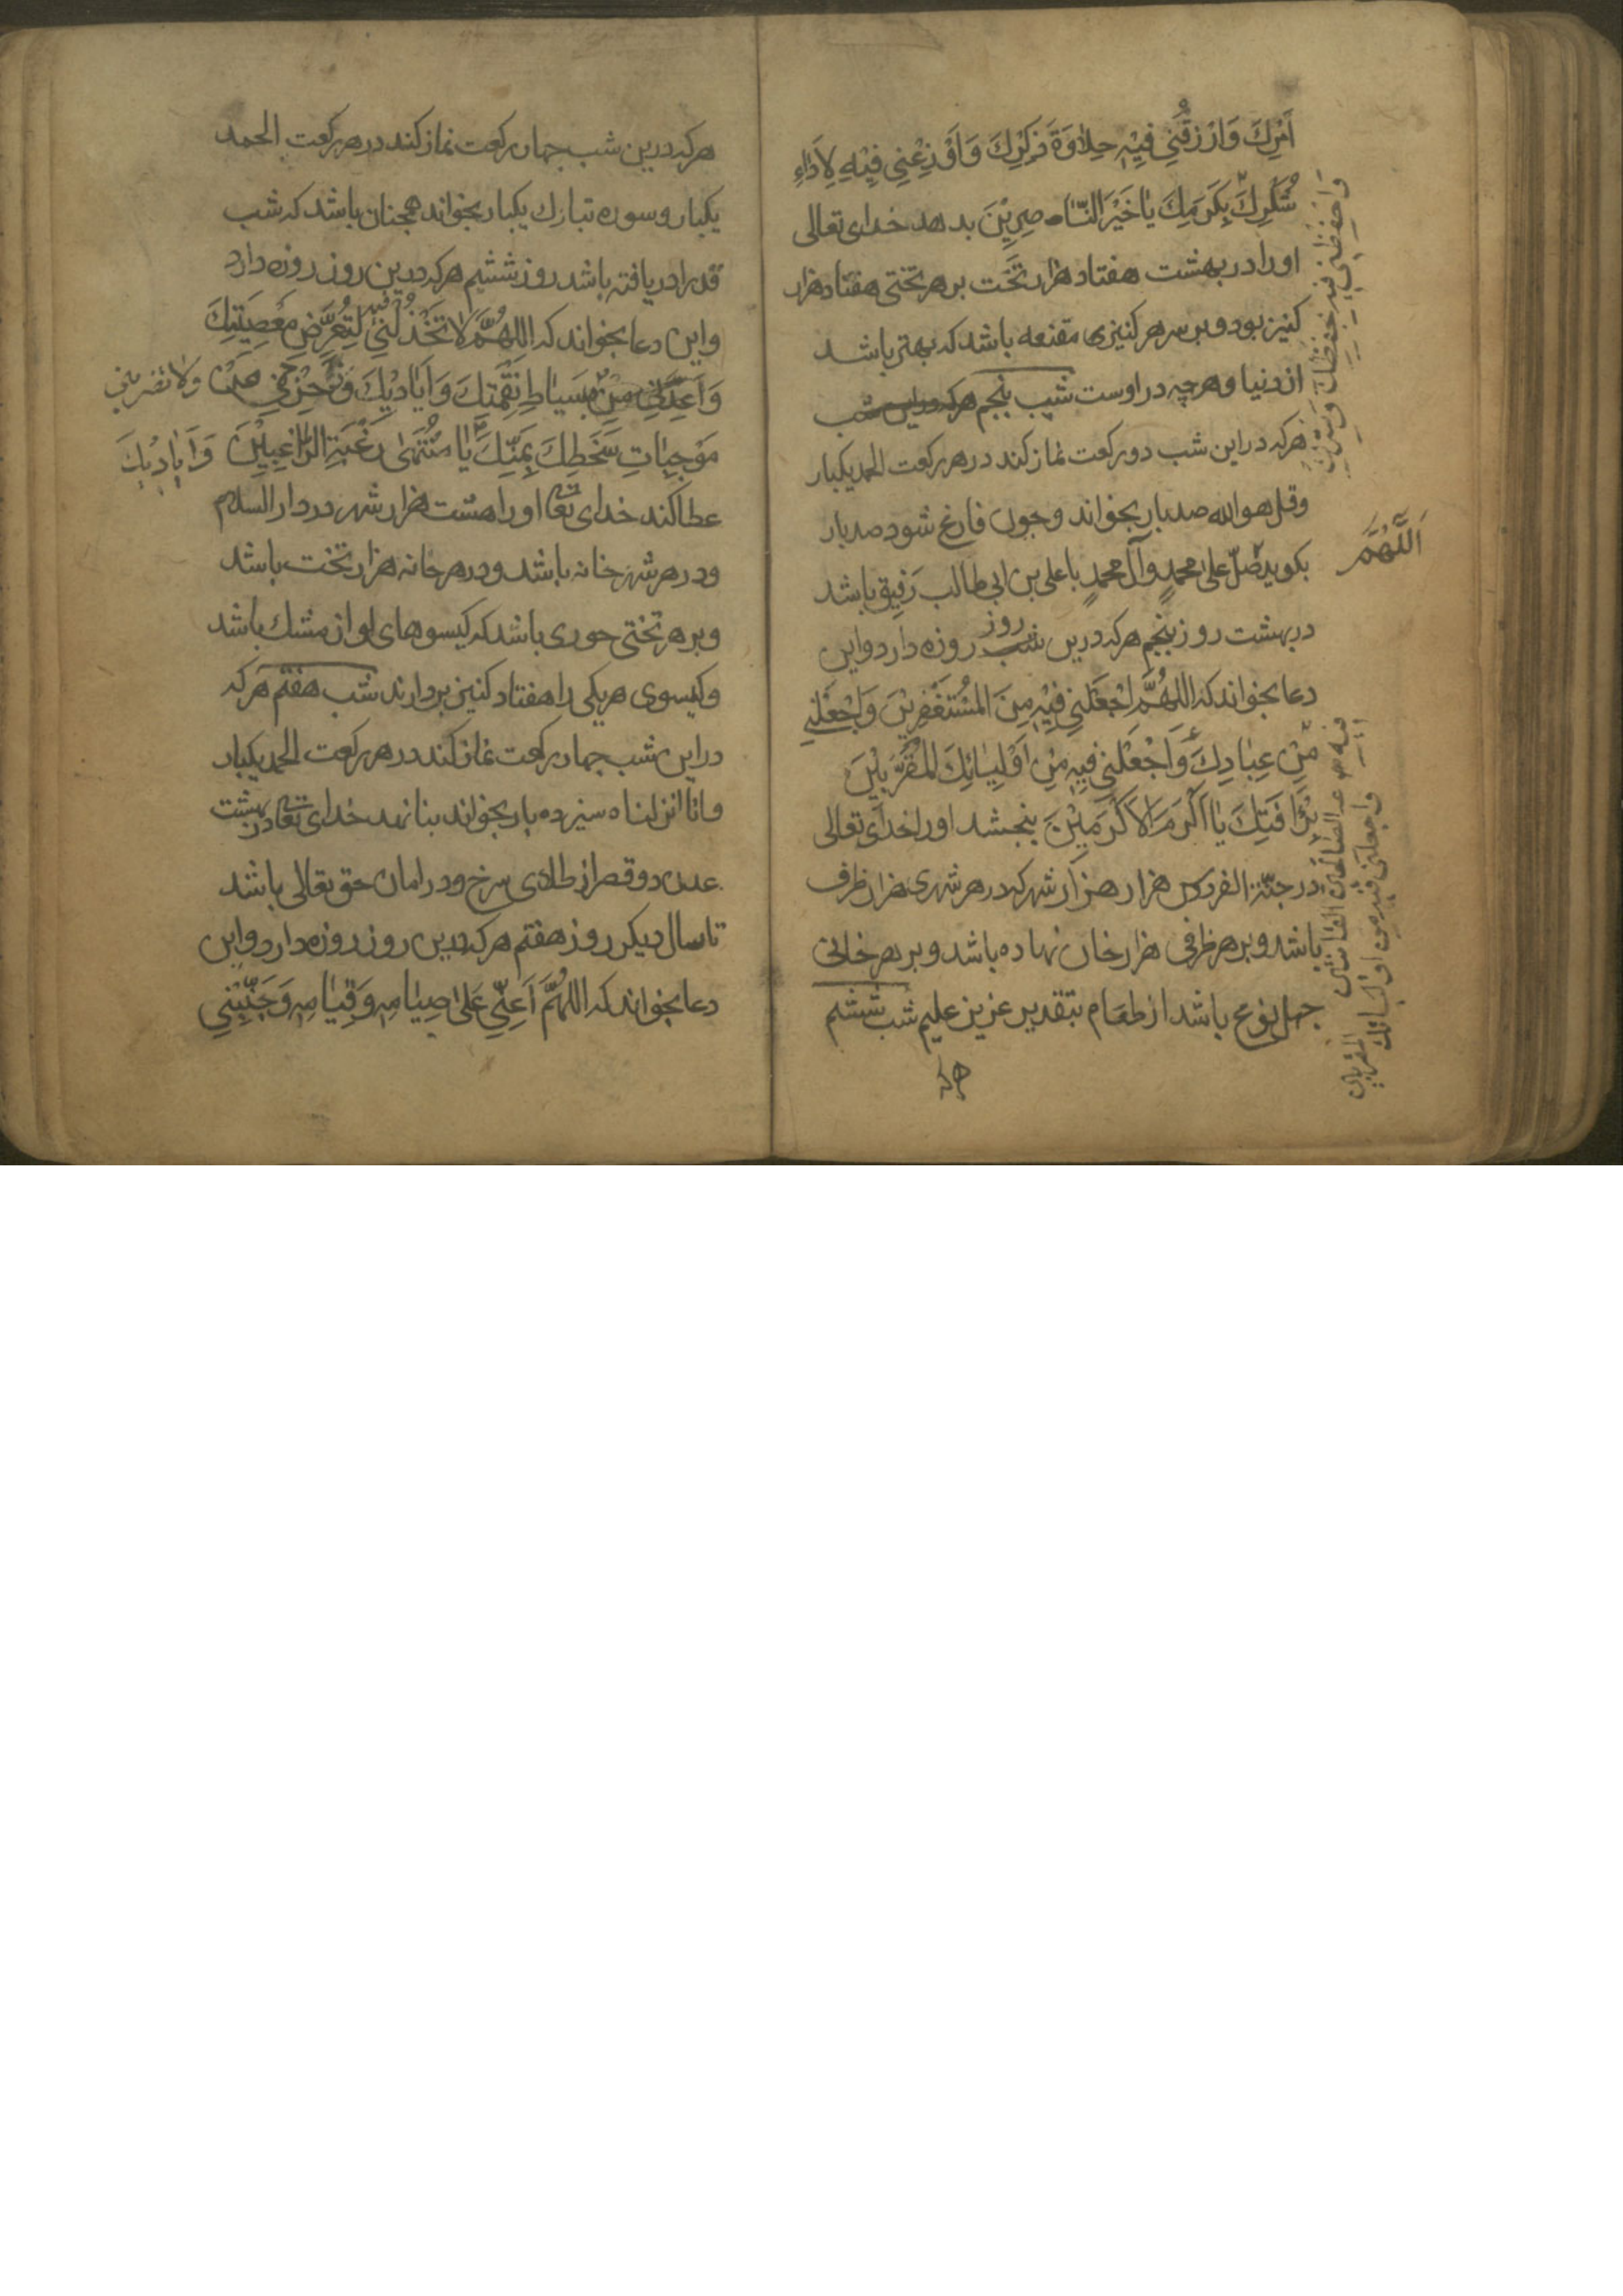 اَمْرِكَ وَارْزُقْنِي فِيْهِ حِلاٰوَةَ ذِكْرِكَ وَاَوْزِعْنِي فِيْهِ لِاَدٰاءِ
شُكْرِكَ بِكَرَمِكَ يٰا خَيْرَ النّٰاصِرِيْنَ بدهد خدای تعالی
اورا در بهشت هفتاد هزار تخت بر هر تختی هفتاد هزار
کنیز بود و بر سر هر کنیزی مقنعه باشد که بهتر باشد
از دنیا و هرچه در اوست شب پنجم هرکه دراین شب
هرکه در این شب دو رکعت نماز کند در هر رکعت الحمد یکبار
وقل هو الله صد بار بخواند وجون فارغ شود صد بار
بکوید صَلّ علیٰ محمدٍ وآل محمدٍ با علی بن ابی طالب رفیق باشد
اَللّٰهُمَّ
در بهشت روز پنجم هرکه درین شب روز روزه دارد واین
دعا بخواند که اللهُمَّ اجْعَلْنِي فِيْهِ مِنَ المُسْتَغْفِرِيْنَ وَاجْعَلْنِي
مِنْ عِبٰادِكَ وَاجْعَلْنِي فِيْهِ مِنْ اَوْلِيٰائِكَ المُقَرَّبِيْنَ
بِرَأفَتِكَ يٰا اَكْرَمَ الاَكْرَمِيْنَ ببخشد اورا خدای تعالی
در جنّة الفردوس هزار هزار شهر که در هر شهری هزار ظرف
باشد و بر هر ظرفی هزار خان نهاده باشد و بر هر خانی
جهل نوع باشد از طعام بتقدیر عزیز علیم شب ششم
هرکه
واحفظنی فیه بحفظك وسترك
فیه من عبادك الصالحین القانتین
واجعلنی فیه من اولیائك
المقربین
هرکه درین شب جهار رکعت نماز کند در هر رکعت الحمد
یکبار و سوره تبارك یکبار بخواند همجنان باشد که شب
قدر را دریافته باشد روز ششم هرکه درین روز روزه دارد
واین دعا بخواند که اللهُمَّ لاٰ تَخْذُلْنِي فیه لِتَعَرُّضِ مَعْصِيَتِكَ
وَاَعِذْنِي مِنْ سِيٰاطِ نِقْمَتِكَ وَاَيٰادِيْكَ وَزَحْزِحْنِي مِنْ ولا تضربنی
مُوْجِبٰاتِ سَخَطِكَ بِمَنِّكَ يٰا مُنْتَهىٰ رَغْبَةِ الرّٰاغِبِيْنَ وَاَيٰادِيْكَ
عطا کند خدای تعا اورا هشت هزار شهر در دار السلام
و در هر شهر خانه باشد و در هر خانه هزار تخت باشد
و بر هر تختی حوری باشد که کیسوهای او از مشك باشد
و کیسوی هریکی را هفتاد کنیز بردارند شب هفتم هرکه
در این شب جهار رکعت نماز کند در هر رکعت الحمد یکبار
وانا انزلناه سیزده بار بخواند بنا نهد خدای تعا در بهشت
عدن دو قصر از طلای سرخ و در امان حق تعالی باشد
تا سال دیکر روز هفتم هرکه درین روز روزه دارد واین
دعا بخواند که اللهُمَّ اَعِنِّي عَلىٰ صِيٰامِهِ وَقِيٰامِهِ وَجَنِّبْنِي